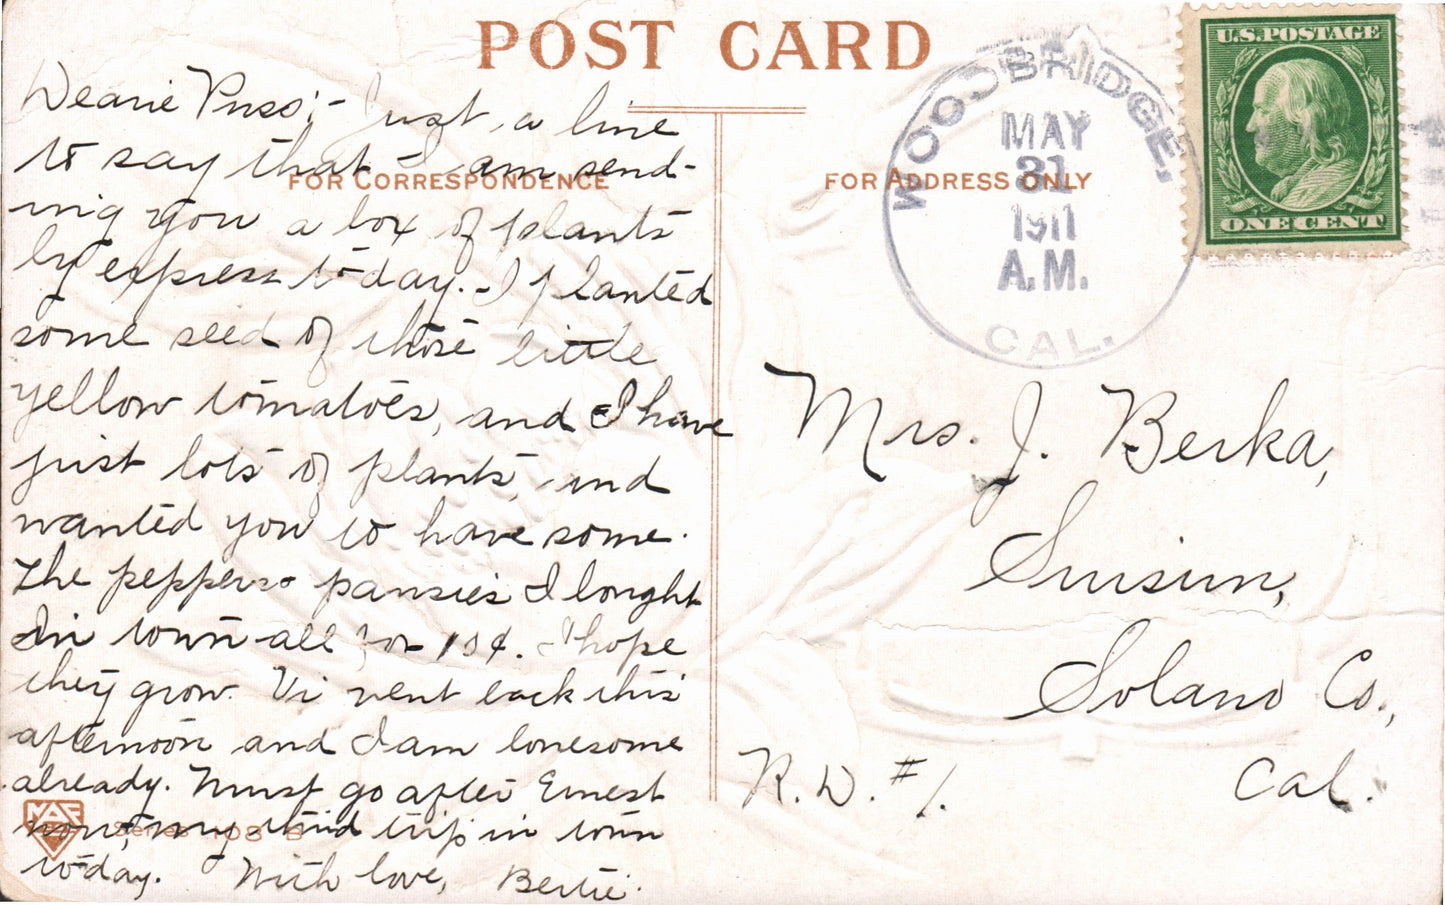 POST CARD
Dearie Puss:- Just a line
to say that I am send-
FOR CORRESPONDENCE
ing you a box of plants
by express to-day. - I planted
some seed of those little
yellow tomatoes, and I have
just lots of plants, and
wanted you to have some.
The peppers & pansies I bought
in town all for 15¢. I hope
they grow. Vi went back this
afternoon and I am lonesome
already. Must go after Ernest
now, my third trip in town
to-day. With love, Bertie.
Series 108 B
WOODBRIDGE,
MAY
31
1911
A.M.
CAL.
U.S. POSTAGE
ONE CENT
FOR ADDRESS ONLY
Mrs. J. Berka,
Suisun,
Solano Co.,
R.D. #1. Cal.